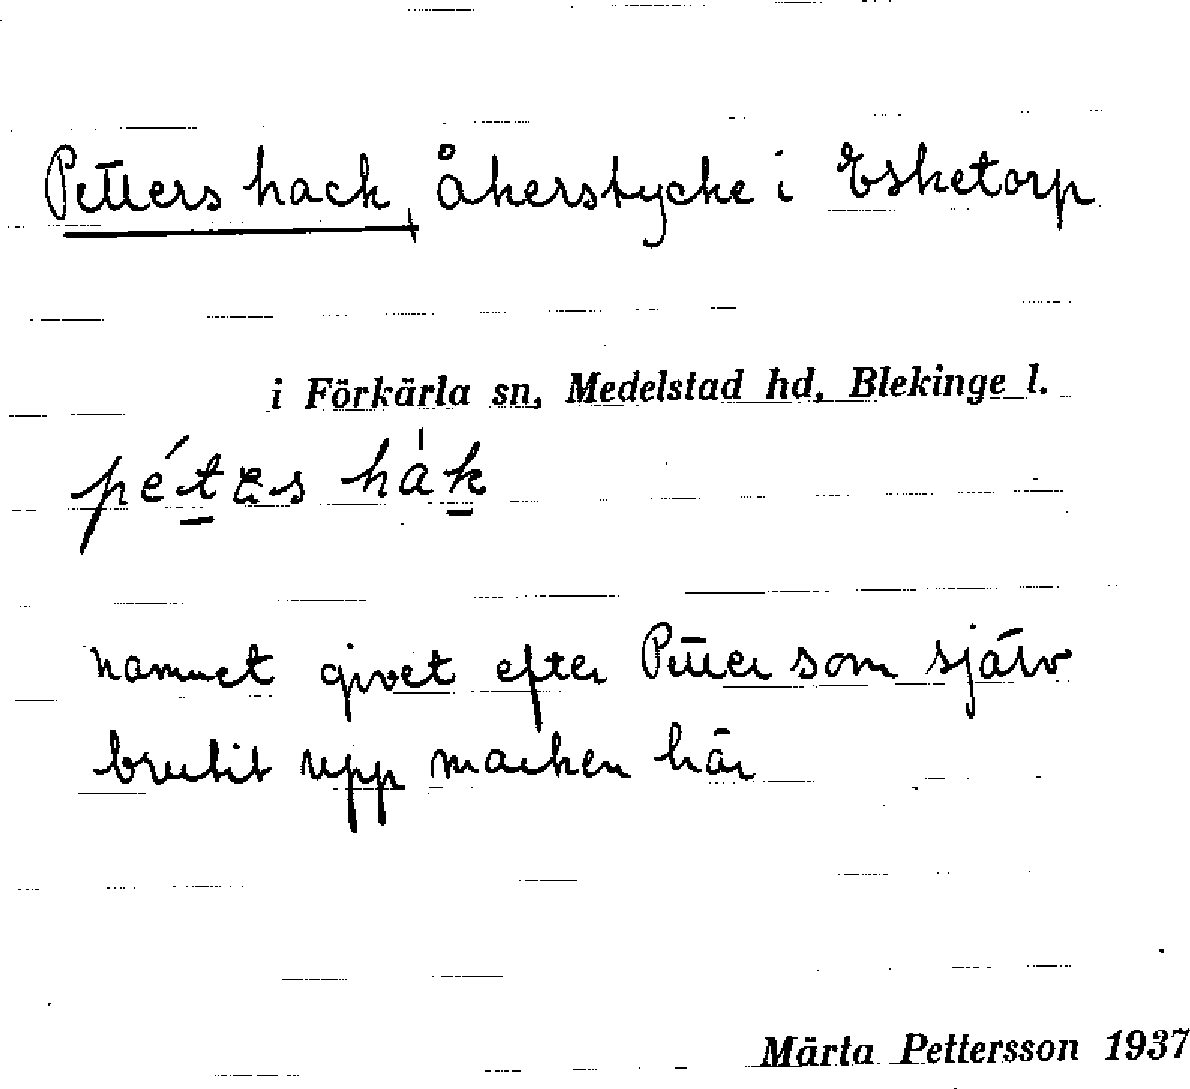 Petters hack, åkerstycke i Esketorp
i Förkärla sn, Medelstad hd, Blekinge l.
hák
namnet givet efter Petter som själv
brutit upp marken här
Märta Pettersson 1937